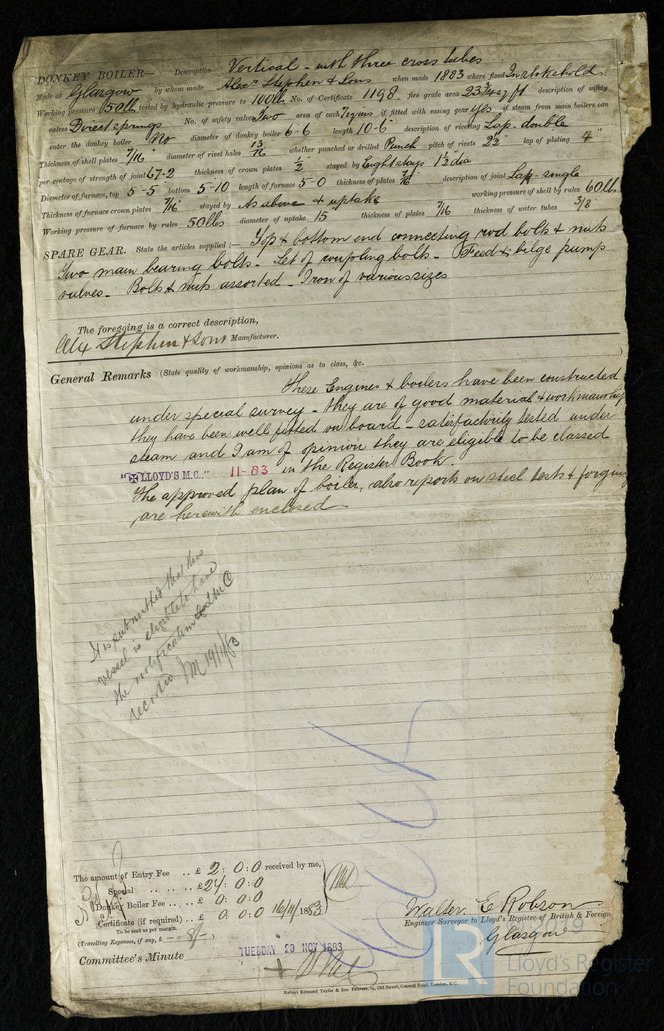 DONKEY BOILER— Description Vertical - with three cross tubes
Made at Glasgow by whom made Alexr Stephen & Sons when made 1883 where fixed In stokehold
Working pressure 50lb tested by hydraulic pressure to 100lb No. of Certificate 1198 fire grate area 23¾ sq ft description of safety
valves Direct springs No. of safety valves Two area of each 7□ins if fitted with easing gear yes if steam from main boilers can
enter the donkey boiler No diameter of donkey boiler 6-6 length 10-6 description of riveting Lap-double
Thickness of shell plates 7/16 diameter of rivet holes 13/16 whether punched or drilled Punch pitch of rivets lap of plating 4"
per centage of strength of joint 67-2 thickness of crown plates 1/2 stayed by Eight stays 1½ dia
Diameter of furnace, top 5-5 bottom 5-10 length of furnace 5-0 thickness of plates 7/16 description of joint Lap-single
Thickness of furnace crown plates 7/16 stayed by As above & uptake working pressure of shell by rules 60lb
Working pressure of furnace by rules 50lbs diameter of uptake 15 thickness of plates 7/16 thickness of water tubes 3/8
SPARE GEAR. State the articles supplied:— Top & bottom end connecting rod bolts & nuts
Two main bearing bolts - Set of coupling bolts - Feed & bilge pump
valves - Bolts & nuts assorted - Iron of various sizes
The foregoing is a correct description,
Alex Stephen & Sons Manufacturer.
General Remarks (State quality of workmanship, opinions as to class, &c.
These Engines & boilers have been constructed
under special survey - they are of good material & workmanship
they have been well fitted on board - satisfactorily tested under
steam and I am of opinion they are eligible to be classed
"✠LLOYD'S M.C." 11-83 in the Register Book.
The approved plan of boiler, also reports on steel tests & forgings
are herewith enclosed
It is submitted that this
vessel is eligible to have
the notification LMC
recorded 19/11/83
The amount of Entry Fee .. £ 2: 0:0 received by me,
Special .. .. £24: 0:0
Donkey Boiler Fee .. £ 0: 0:0
Certificate (if required) .. £ 0: 0:0 16/11/1883
To be sent as per margin.
(Travelling Expenses, if any, £ — 8/-)
Committee's Minute
TUESDAY 20 NOV 1883
Walter E Robson
Engineer Surveyor to Lloyd's Register of British & Foreign
Glasgow
LR
Lloyd's Register
Foundation